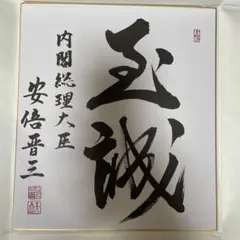 至誠
内閣総理大臣
安倍晋三